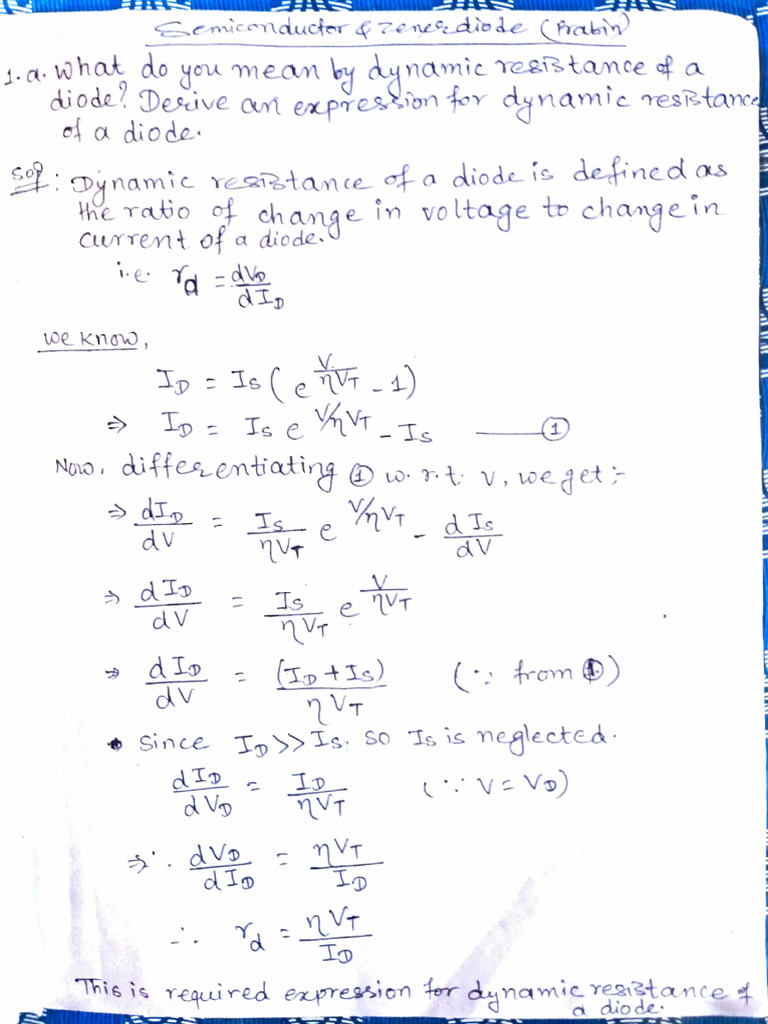 Semiconductor & Zener diode (Prabin)
1.a. What do you mean by dynamic resistance of a
diode? Derive an expression for dynamic resistance
of a diode.
Solⁿ: Dynamic resistance of a diode is defined as
the ratio of change in voltage to change in
current of a diode.
i.e. r_d = dV_D/dI_D
we know,
I_D = I_S ( e^{V/ηV_T} - 1)
⇒ I_D = I_S e^{V/ηV_T} - I_S —— ①
Now, differentiating ① w.r.t. V, we get :-
⇒ dI_D/dV = I_S/ηV_T e^{V/ηV_T} - dI_S/dV
⇒ dI_D/dV = I_S/ηV_T e^{V/ηV_T}
⇒ dI_D/dV = (I_D + I_S)/ηV_T (∵ from ①)
• Since I_D >> I_S. So I_S is neglected.
dI_D/dV_D = I_D/ηV_T (∵ V = V_D)
⇒∴ dV_D/dI_D = ηV_T/I_D
∴ r_d = ηV_T/I_D
This is required expression for dynamic resistance of
a diode.